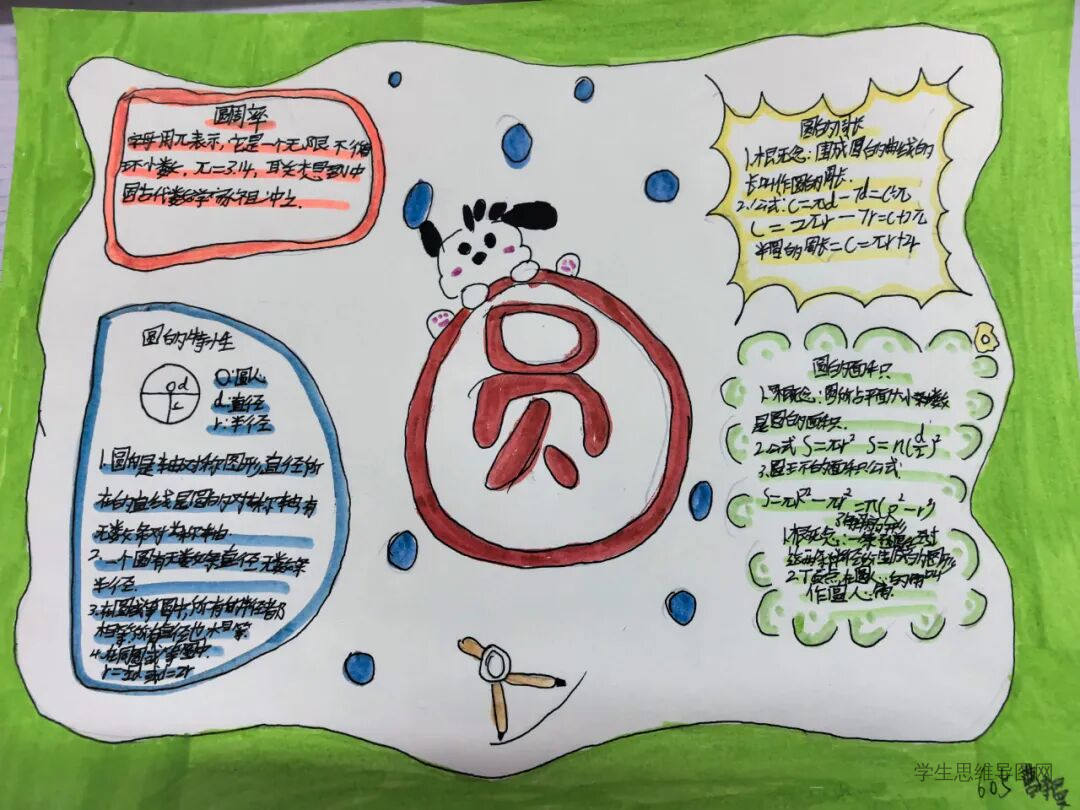 圆周率
字母用π表示,它是一个无限不循
环小数,π=3.14,
国古代数学家祖冲之.
圆的特性
d
r
O:圆心
d:直径
r:半径
1.圆是轴对称图形,直径所
在的直线是圆的对称轴,有
无数条对称轴.
2.一个圆有无数条直径,无数条
半径.
3.在同圆或等圆中,所有的半径都
相等,所有直径也相等.
4.在同圆或等圆中
d=2r
圆
圆的周长
1.概念:围成圆的曲线的
长叫作圆的周长.
2.公式:C=πd→d=C÷π
C=2πr→
半圆的周长=C=πr+2r
圆的面积
1.概念:圆所占平面大小
是圆的面积.
2.公式 S=πr² S=π(d/2)²
3.圆环的面积公式:
S=πR²-πr²=π(R²-r²)
1.概念:一条
2.顶点在圆心的角叫
作圆心角.
学生思维导图网
605